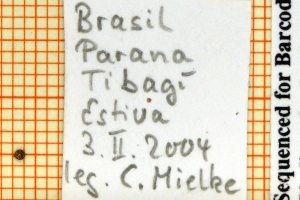 Brasil
Parana
Tibagi
Estiva
3. II. 2004
leg. C. Mielke
Sequenced for Barcod